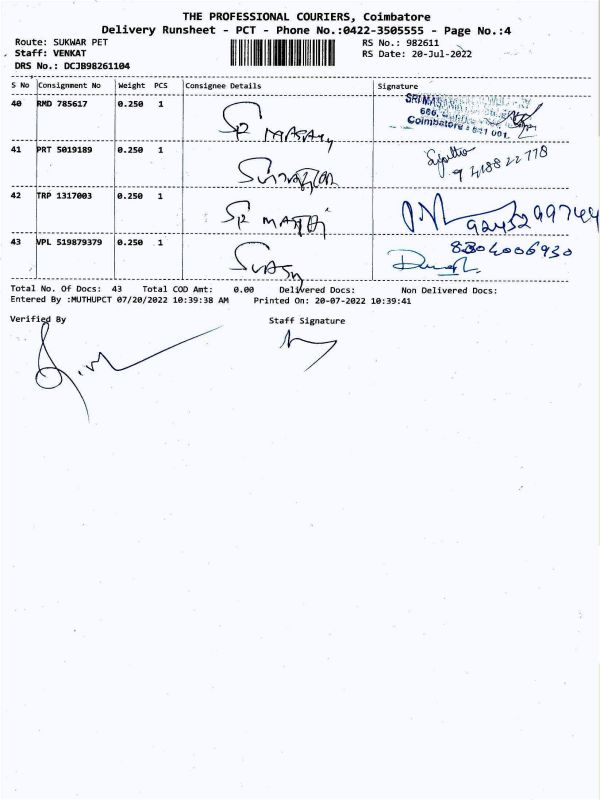 THE PROFESSIONAL COURIERS, Coimbatore
Delivery Runsheet - PCT - Phone No.:0422-3505555 - Page No.:4
Route: SUKWAR PET RS No.: 982611
Staff: VENKAT RS Date: 20-Jul-2022
DRS No.: DCJB98261104
S No Consignment No Weight PCS Consignee Details Signature
40 RMD 785617 0.250 1
Coimbatore - 641 001.
41 PRT 5019189 0.250 1
42 TRP 1317003 0.250 1
43 VPL 519879379 0.250 1
Total No. Of Docs: 43 Total COD Amt: 0.00 Delivered Docs: Non Delivered Docs:
Entered By :MUTHUPCT 07/20/2022 10:39:38 AM Printed On: 20-07-2022 10:39:41
Verified By Staff Signature